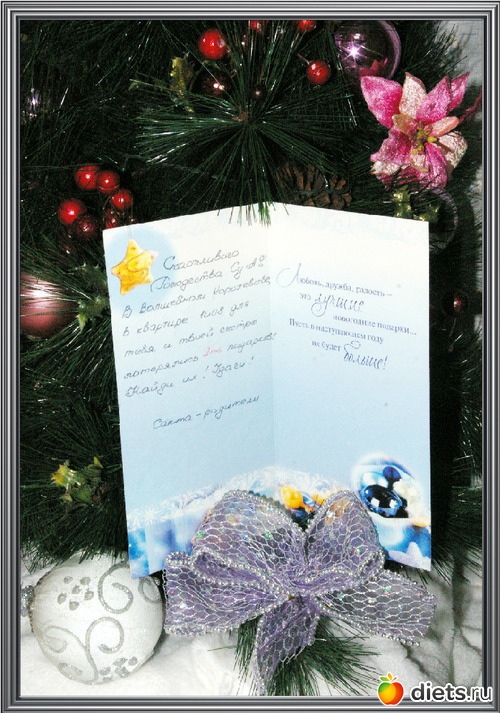 Счастливого
Рождества
В Волшебном Королевстве,
в квартире
для
тебя и твоей сестры
потерялись подарков!
Найди их! Удачи!
Санта-родители
Любовь, дружба, радость –
это лучшие
новогодние подарки...
Пусть в наступающем году
их будет больше!
diets.ru